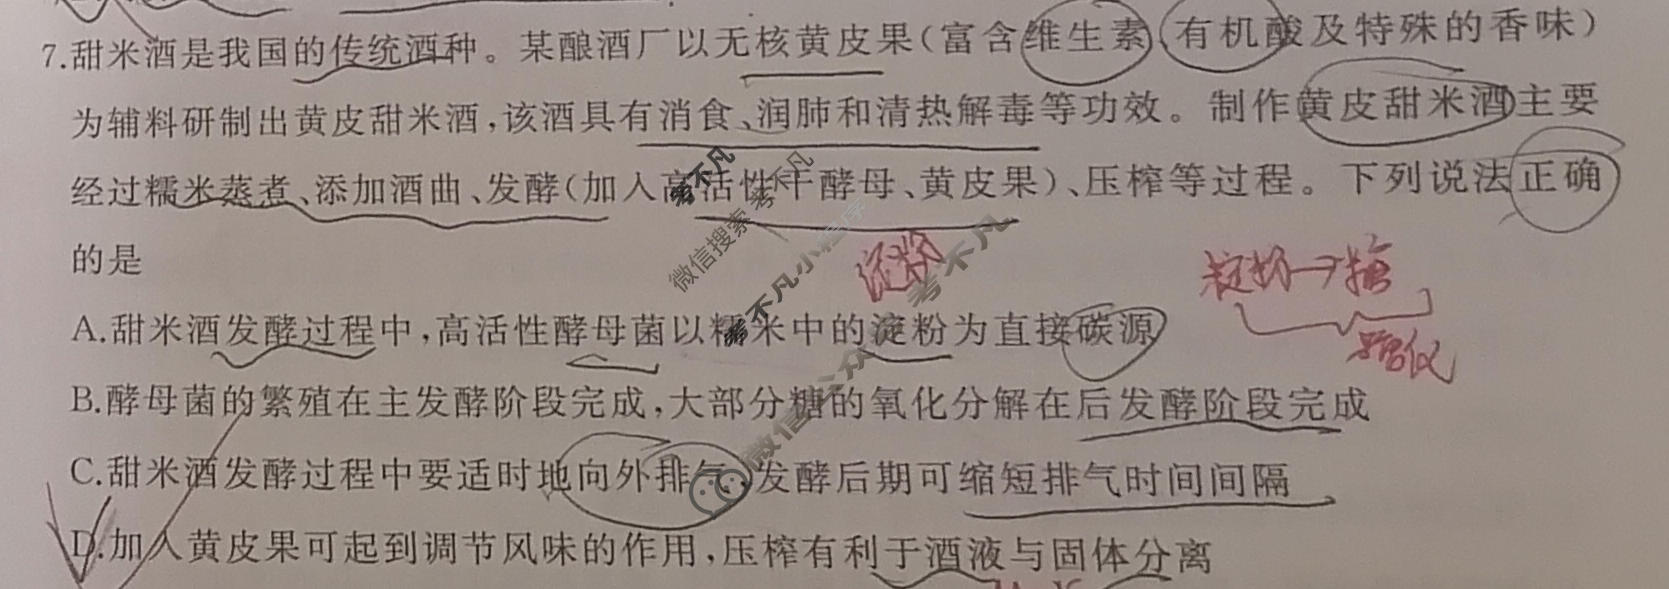 7.甜米酒是我国的传统酒种。某酿酒厂以无核黄皮果(富含维生素、有机酸及特殊的香味)
为辅料研制出黄皮甜米酒,该酒具有消食、润肺和清热解毒等功效。制作黄皮甜米酒主要
经过糯米蒸煮、添加酒曲、发酵(加入高活性干酵母、黄皮果)、压榨等过程。下列说法正确
的是
淀粉→糖
A.甜米酒发酵过程中,高活性酵母菌以糯米中的淀粉为直接碳源
B.酵母菌的繁殖在主发酵阶段完成,大部分糖的氧化分解在后发酵阶段完成
C.甜米酒发酵过程中要适时地向外排气,发酵后期可缩短排气时间间隔
D.加入黄皮果可起到调节风味的作用,压榨有利于酒液与固体分离
考不凡
微信搜索 考不凡
考不凡小程序
微信公众 考不凡